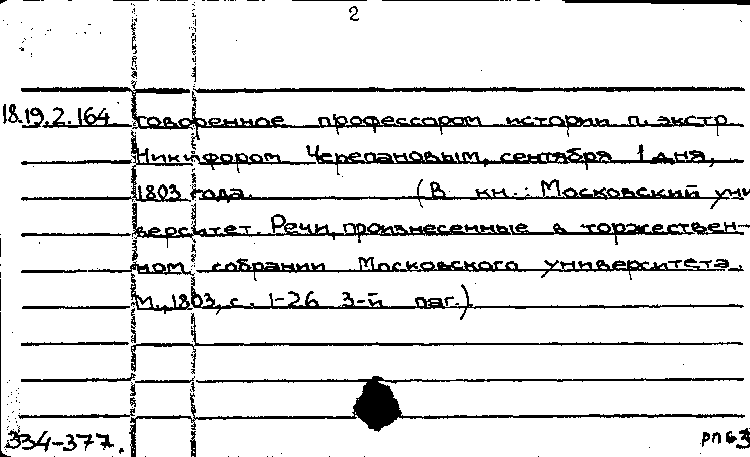 2
18.19.2.164 говоренное профессором истории п. экстр.
Никифором Черепановым, сентября 1 дня,
1803 года. (В кн.: Московский уни
верситет. Речи, произнесенные в торжествен-
ном собрании Московского университета.
М., 1803, с. 1-26 3-й паг.)
334-377.